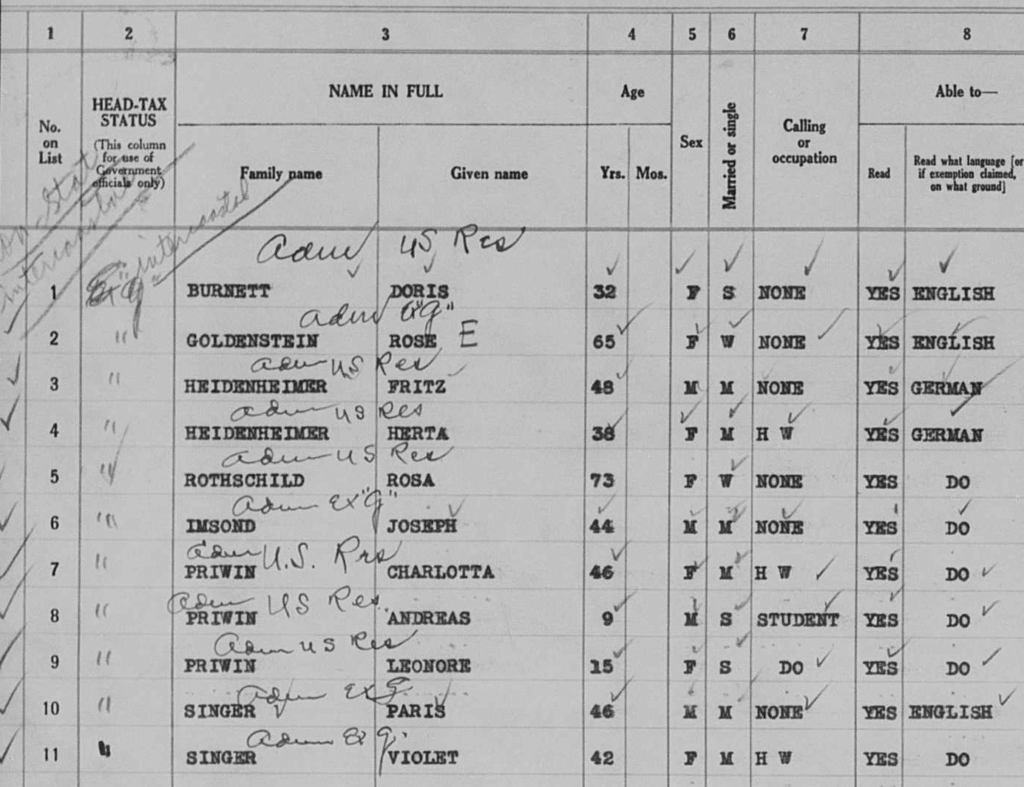 1 2 3 4 5 6 7 8
No. on List
HEAD-TAX STATUS
(This column for use of Government officials only)
NAME IN FULL
Family name Given name
Age
Yrs. Mos.
Sex
Married or single
Calling or occupation
Able to—
Read
Read what language [or if exemption claimed, on what ground]
intercoastal
Adm US Res
1 Ex "g" BURNETT DORIS 32 F S NONE YES ENGLISH
Adm "g"
2 " GOLDENSTEIN ROSE E 65 F W NONE YES ENGLISH
Adm US Res
3 " HEIDENHEIMER FRITZ 48 M M NONE YES GERMAN
Adm US Res
4 " HEIDENHEIMER HERTA 38 F M H W YES GERMAN
Adm US Res
5 " ROTHSCHILD ROSA 73 F W NONE YES DO
Adm Ex "g"
6 " IMSOND JOSEPH 44 M M NONE YES DO
Adm U.S. Res
7 " PRIWIN CHARLOTTA 46 F M H W YES DO
Adm US Res
8 " PRIWIN ANDREAS 9 M S STUDENT YES DO
Adm US Res
9 " PRIWIN LEONORE 15 F S DO YES DO
Adm Ex g
10 " SINGER PARIS 46 M M NONE YES ENGLISH
Adm Ex g
11 " SINGER VIOLET 42 F M H W YES DO